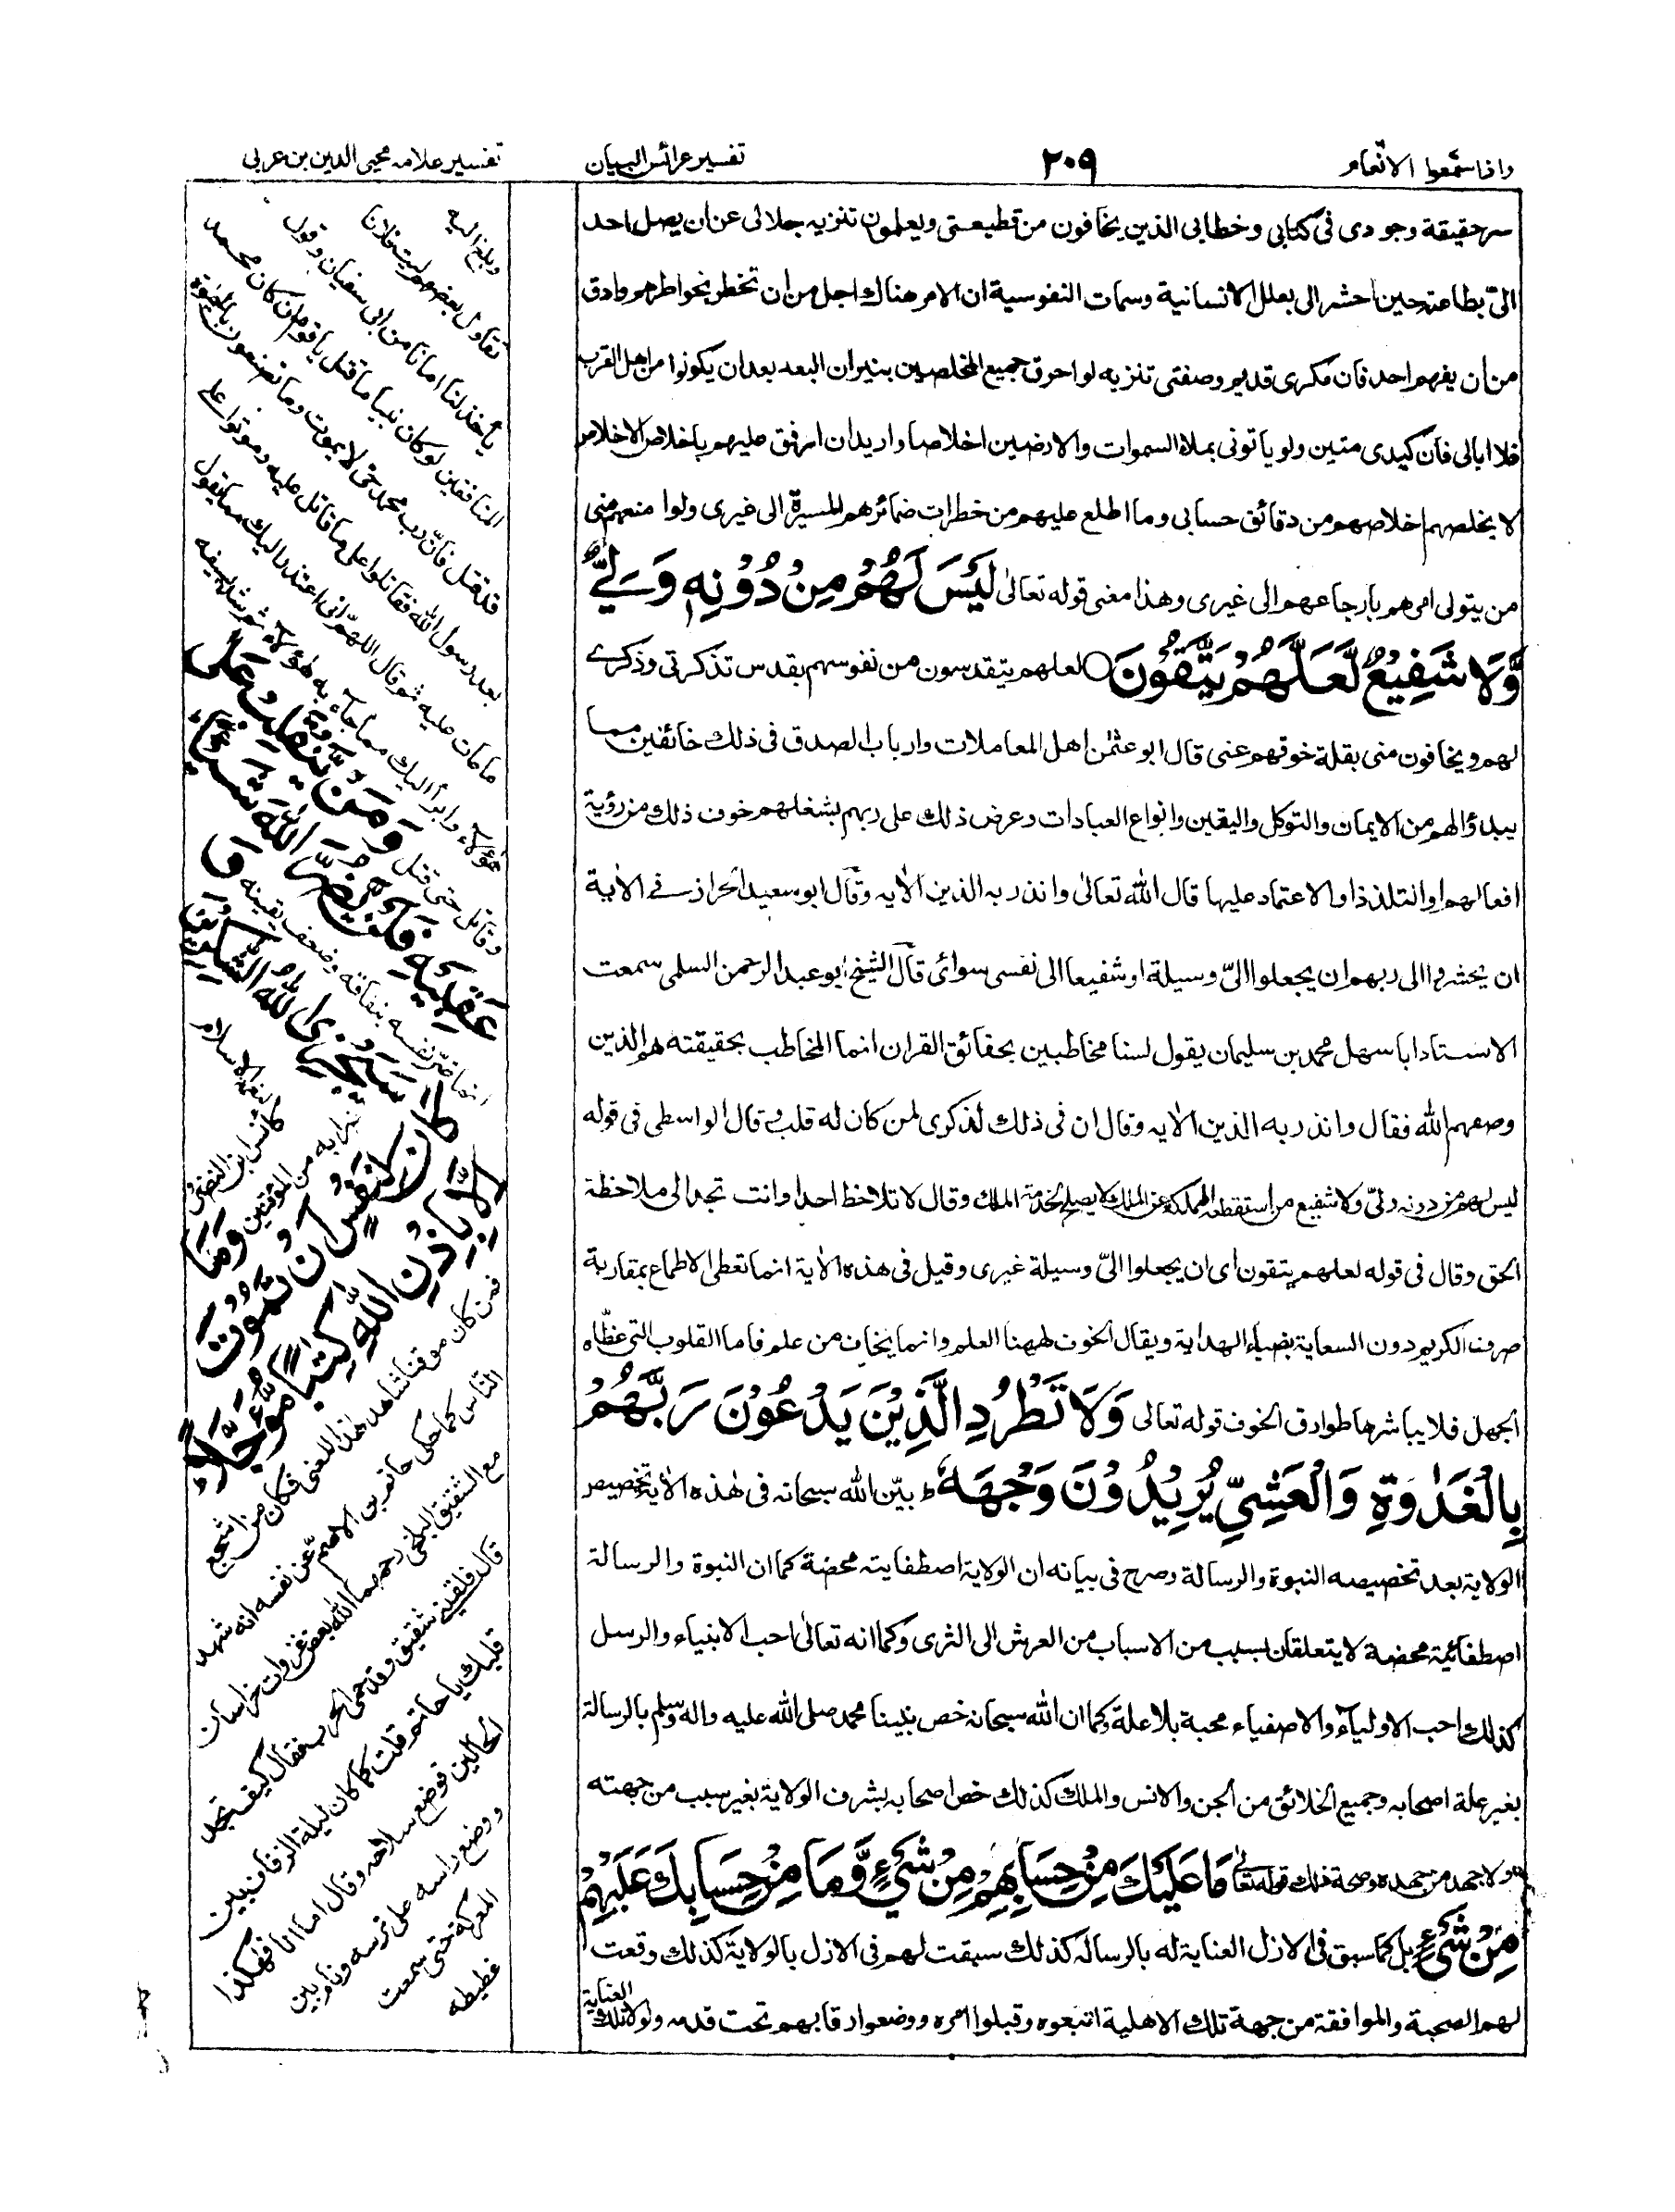 واذا سمعوا الانعام
٢٠٩
تفسير عرائس البيان
تفسير علامه محيى الدين بن عربى
سر حقيقة وجودى فى كتابى وخطابى الذين يخافون من قطيعتى ويعلمون تنزيه جلالى عن ان يصل احد
الىّ بطاعته حين احشر الى بعلل الانسانية وسمات النفوسية ان الامر هناك اجل من ان تخطر بخواطرهم وادق
من ان يفهم احد فان مكرى قديم وصفتى تنزيه لو احرق جميع المخلصين بنيران البعد بعد ان يكونوا من اهل القرب
فلا ابالى فان كيدى متين ولو ياتونى بملاء السموات والارضين اخلاصا واريد ان ارفق عليهم باخلاص الاخلاص
لا يخلصهم اخلاصهم من دقائق حسابى وما اطلع عليهم من خطرات ضمائرهم المسيرة الى غيرى ولوا منعهم منى
من يتولى امرهم بارجاعهم الى غيرى وهذا معنى قوله تعالى لَيْسَ لَهُمْ مِنْ دُوْنِهٖ وَلِيٌّ
وَّلَا شَفِيْعٌ لَّعَلَّهُمْ يَتَّقُوْنَ لعلهم يتقدسون من نفوسهم بقدس تذكرتى وذكرے
لهم ويخافون منى بقلة خوفهم عنى قال ابو عثمٰن اهل المعاملات وارباب الصدق فى ذلك خائفين مما
يبدؤ الهم من الايمان والتوكل واليقين وانواع العبادات وعرض ذلك على ربهم بشغلهم خوف ذلك من رؤية
افعالهم او التلذذ او الاعتماد عليها قال الله تعالى وانذر به الذين الاٰيه وقال ابو سعيد الخراز فے الاٰية
ان يحشروا الى ربهم ان يجعلوا الىّ وسيلة او شفيعا الى نفسى سوائى قال الشيخ ابو عبد الرحمن السلمى سمعت
الاستاد ابا سهل محمد بن سليمان يقول لسنا مخاطبين بحقائق القران انما المخاطب بحقيقته هم الذين
وصفهم الله فقال وانذر به الذين الاٰيه وقال ان فى ذلك لذكرى لمن كان له قلب وقال الواسطى فى قوله
ليس لهم من دونه ولىّ ولا شفيع من استقطعه المملكة عن الملك لا يصلح لخدمة الملك وقال لا تلاحظ احدا وانت تجد الى ملاحظة
الحق وقال فى قوله لعلهم يتقون اى ان يجعلوا الىّ وسيلة غيرى وقيل فى هذه الاٰية انما تعطى الاطماع بمقاربة
صرف الكريم دون السعاية بضياء الهداية ويقال الخوف ههنا العلم وانما يخاف من علم فاما القلوب التى غطّاه
الجهل فلا يباشرها طوارق الخوف قوله تعالى وَلَا تَطْرُدِ الَّذِيْنَ يَدْعُوْنَ رَبَّهُمْ
بِالْغَدٰوةِ وَالْعَشِيِّ يُرِيْدُوْنَ وَجْهَهٗ ط بيّن الله سبحانه فى هٰذه الاٰية تخصيص
الولاية بعد تخصيصه النبوة والرسالة وصرح فى بيانه ان الولاية اصطفايته محضة كما ان النبوة والرسالة
اصطفائية محضة لا يتعلقان بسبب من الاسباب من العرش الى الثرى وكما انه تعالى احب الانبياء والرسل
كذلك احب الاولياء والاصفياء محبة بلا علة وكما ان الله سبحانه خص نبينا محمد صلى الله عليه واله وسلم بالرسالة
بغير علة اصحابه وجميع الخلائق من الجن والانس والملك كذلك خص اصحابه بشرف الولاية بغير سبب من جهته
ولا جهد من جهده وصحة ذلك قوله تعالى مَا عَلَيْكَ مِنْ حِسَابِهِمْ مِنْ شَيْءٍ وَّمَا مِنْ حِسَابِكَ عَلَيْهِمْ
مِنْ شَيْءٍ بل كما سبق فى الازل العناية له بالرساله كذلك سبقت لهم فى الازل بالولاية كذلك وقعت
لهم الصحبة والموافقة من جهة تلك الاهلية اتبعوه وقبلوا امره ووضعوا رقابهم تحت قدمه ولولا تلك العناية
وبلغ اليه
تقاول بعضهم ليت فلانا
يأخذ لنا امانا من ابى سفيان وقول
المنافقين لو كان نبيا ما قتل يا قوم ان كان محمد
قد قتل فانّ رب محمد حىّ لا يموت وما تصنعون بالحيٰوة
بعد رسول الله فقاتلوا على ما قاتل عليه وموتوا على
ما مات عليه ثم قال اللهم انى اعتذر اليك مما يقول
هؤلاء وابرأ اليك مما جاء به هؤلاء ثم شد بسيفه
وقاتل حتى قتل وَمَنْ يَّنْقَلِبْ عَلٰى
عَقِبَيْهِ فَلَنْ يَّضُرَّ اللّٰهَ شَيْئًا
انما ضرّ نفسه بنفاقه وضعف يقينه وَ
سَيَجْزِى اللّٰهُ الشّٰكِرِيْنَ
لنعمة الاسلام
كانس ابن النضر
من الموقنين وَمَا
كَانَ لِنَفْسٍ اَنْ تَمُوْتَ
اِلَّا بِاِذْنِ اللّٰهِ كِتٰبًا مُّؤَجَّلًا
فمن كان موقنا شاهد هذا المعنى فكان من اشجع
الناس كما حكى حاتم بن الاصم عن نفسه انه شهد
مع الشقيق البلخى رحمهما الله بعض غزوات خراسان
قال فلقينى شقيق وقد حمى الحرب فقال كيف تجد
قلبك يا حاتم قلت كما كان ليلة الزفاف بين
الحالين فوضع سلاحه وقال اما انا فهكذا
ووضع راسه على ترسه ونام بين
المعركة حتى سمعت
غطيطه